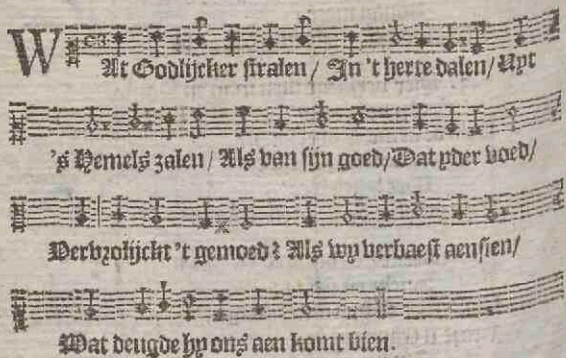 WAt Godlijcker stralen / In 't herte dalen / Uyt
's Hemels zalen / Als van sijn goed / Dat yder voed /
Vervrolijckt 't gemoed? Als wy verbaest aensien /
Wat deugde hy ons aen komt bien.